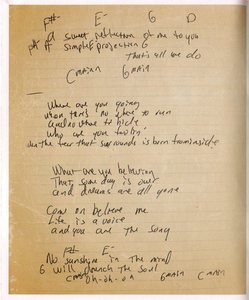 F#- E- G D
A sweet reflection of me to you
A simple projection
That's all we do
C main G main
Where are you going
when there's no where to run
and no where to hide
Why are you
the fear that surrounds is born from inside
What are you believing
That some day is over
and dreams are all gone
Come on believe me
Life is a voice
and you are the song
F#- E-
No sunshine in the mind
G will drench the soul
oh-oh-oh G main C main